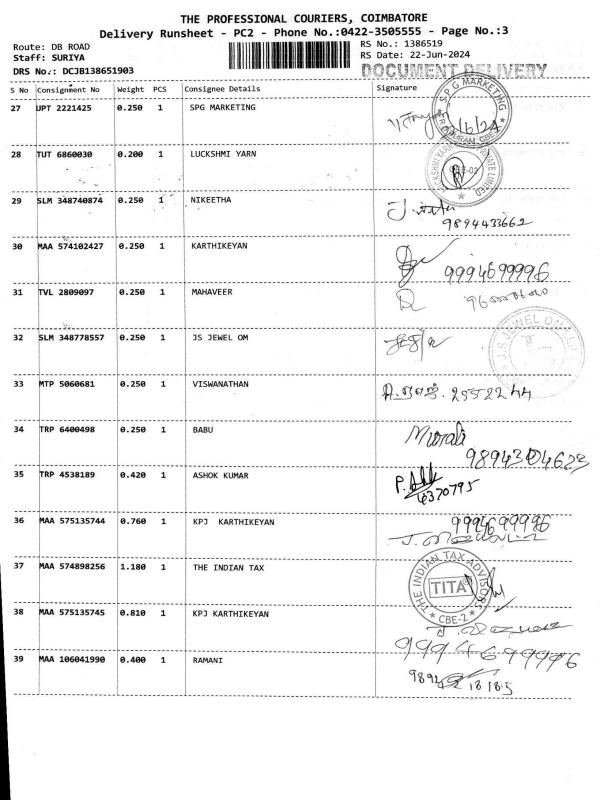 THE PROFESSIONAL COURIERS, COIMBATORE
Delivery Runsheet - PC2 - Phone No.:0422-3505555 - Page No.:3
Route: DB ROAD
Staff: SURIYA
DRS No.: DCJB138651903
RS No.: 1386519
RS Date: 22-Jun-2024
DOCUMENT DELIVERY
S No Consignment No Weight PCS Consignee Details Signature
27 UPT 2221425 0.250 1 SPG MARKETING
SPG MARKETING
28 TUT 6860030 0.200 1 LUCKSHMI YARN
29 SLM 348740874 0.250 1 NIKEETHA
9894433662
30 MAA 574102427 0.250 1 KARTHIKEYAN
9994699996
31 TVL 2809097 0.250 1 MAHAVEER
32 SLM 348778557 0.250 1 JS JEWEL OM
J.S JEWEL OM
33 MTP 5060681 0.250 1 VISWANATHAN
2552244
34 TRP 6400498 0.250 1 BABU
Murali
9894304623
35 TRP 4538189 0.420 1 ASHOK KUMAR
4370795
36 MAA 575135744 0.760 1 KPJ KARTHIKEYAN
9994699996
37 MAA 574898256 1.180 1 THE INDIAN TAX
THE INDIAN TAX ADVISORS
TITA
★ CBE-2 ★
38 MAA 575135745 0.810 1 KPJ KARTHIKEYAN
9994699996
39 MAA 106041990 0.400 1 RAMANI